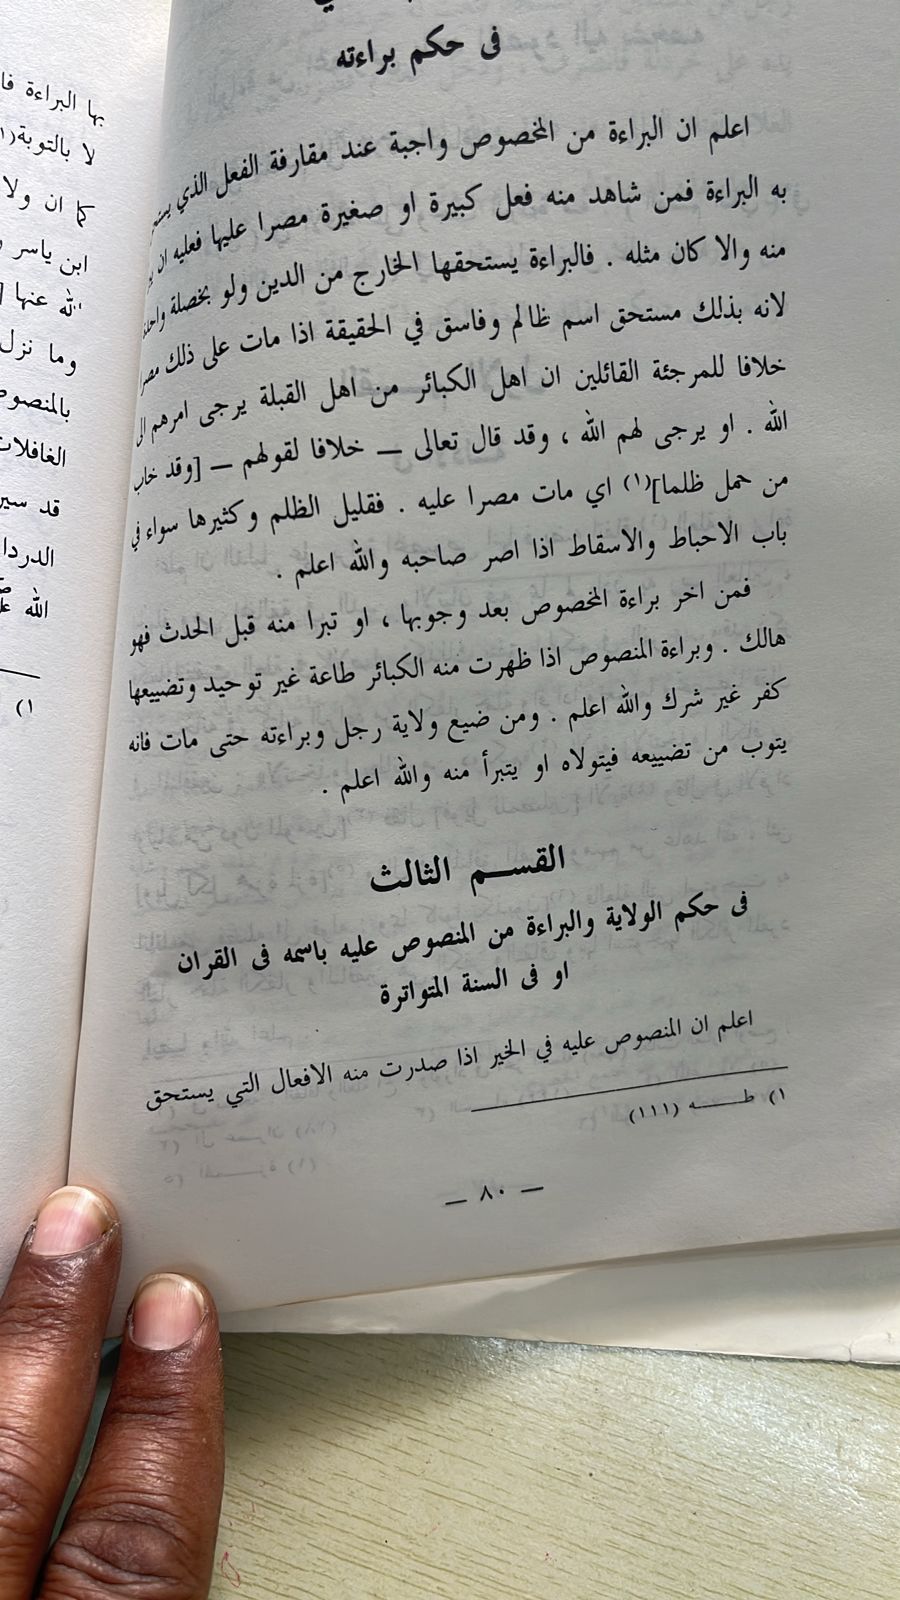 فى حكم براءته
اعلم ان البراءة من المخصوص واجبة عند مقارفة الفعل الذي
به البراءة فمن شاهد منه فعل كبيرة او صغيرة مصرا عليها فعليه ان
منه والا كان مثله . فالبراءة يستحقها الخارج من الدين ولو بخصلة واحدة
لانه بذلك مستحق اسم ظالم وفاسق في الحقيقة اذا مات على ذلك مصرا
خلافا للمرجئة القائلين ان اهل الكبائر من اهل القبلة يرجى امرهم الى
الله . او يرجى لهم الله ، وقد قال تعالى — خلافا لقولهم — [وقد خاب
من حمل ظلما](١) اي مات مصرا عليه . فقليل الظلم وكثيرها سواء في
باب الاحباط والاسقاط اذا اصر صاحبه والله اعلم .
فمن اخر براءة المخصوص بعد وجوبها ، او تبرا منه قبل الحدث فهو
هالك . وبراءة المنصوص اذا ظهرت منه الكبائر طاعة غير توحيد وتضييعها
كفر غير شرك والله اعلم . ومن ضيع ولاية رجل وبراءته حتى مات فانه
يتوب من تضييعه فيتولاه او يتبرأ منه والله اعلم .
القســم الثالث
فى حكم الولاية والبراءة من المنصوص عليه باسمه فى القران
او فى السنة المتواترة
اعلم ان المنصوص عليه في الخير اذا صدرت منه الافعال التي يستحق
١) طـــه (١١١)
— ٨٠ —
بها البراءة
لا بالتوبة
كما ان ولا
ابن ياسر
الله عنها
وما نزل
الغافلات
قد سير
الله ﷺ
١)